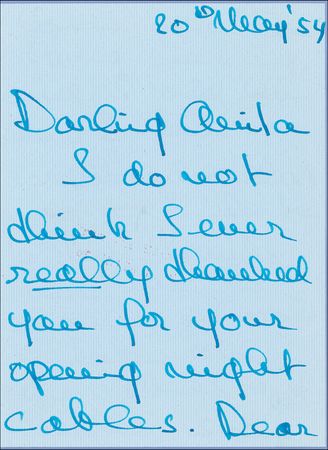 20th May '54
Darling Anita
I do not
think I ever
really thanked
you for your
opening night
cables. Dear